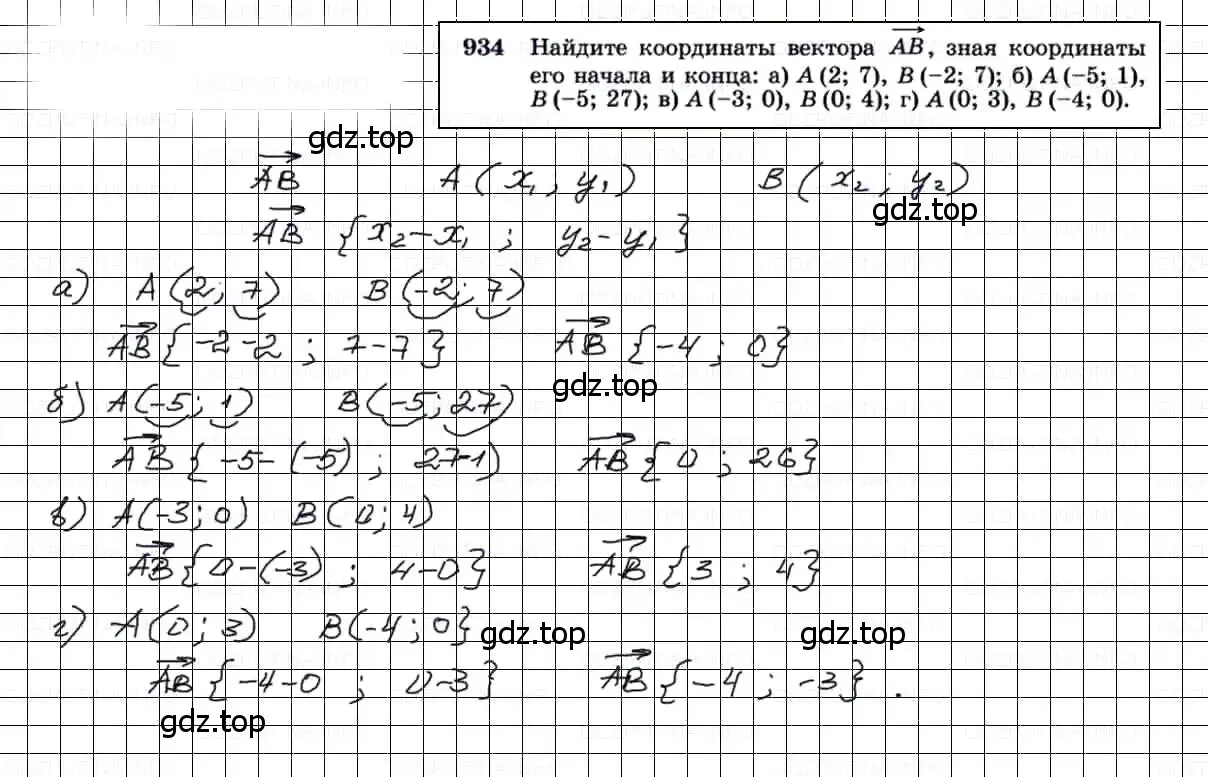 934 Найдите координаты вектора AB, зная координаты
его начала и конца: а) A (2; 7), B (−2; 7); б) A (−5; 1),
B (−5; 27); в) A (−3; 0), B (0; 4); г) A (0; 3), B (−4; 0).
gdz.top
AB A ( x₁ ; y₁ ) B ( x₂ ; y₂ )
gdz.top
AB { x₂ − x₁ ; y₂ − y₁ }
а) A (2; 7) B (−2; 7)
AB { −2 −2 ; 7 − 7 } AB { −4 ; 0 }
gdz.top
б) A (−5; 1) B (−5; 27)
AB { −5 − (−5) ; 27−1 ) AB { 0 ; 26 }
в) A (−3; 0) B (0; 4)
AB { 0 − (−3) ; 4 − 0 } AB { 3 ; 4 }
г) A (0; 3) B (−4; 0}
gdz.top gdz.top
AB { −4 − 0 ; 0 − 3 } AB { −4 ; −3 } .
gdz.top